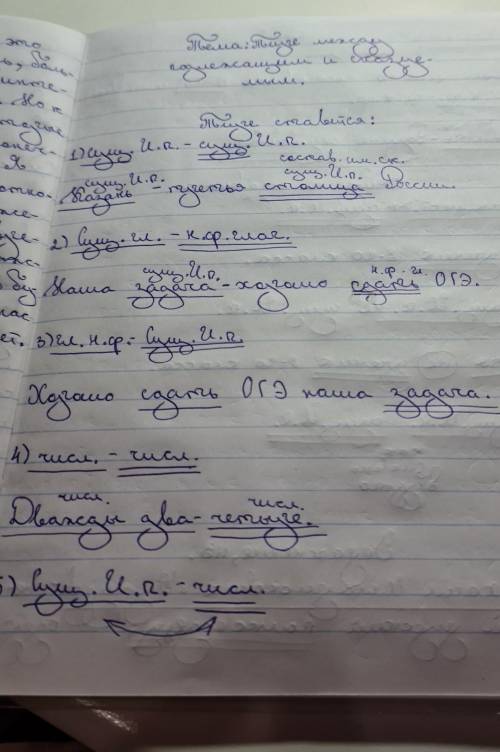 это
ь, боль-
Но к
Я
Тема: Тире между
подлежащим и сказуе-
мым.
Тире ставится:
1) Сущ. И.п. - сущ. И.п.
состав. им. ск.
сущ. И.п. сущ. И.п.
Казань - третья столица России.
2) Сущ. гл. - н.ф. глаг.
сущ. И.п. н.ф. гл.
Наша задача - хорошо сдать ОГЭ.
3) Гл. н.ф. - Сущ. И.п.
Хорошо сдать ОГЭ наша задача.
4) числ. - числ.
числ. числ.
Дважды два - четыре.
5) Сущ. И.п. - числ.